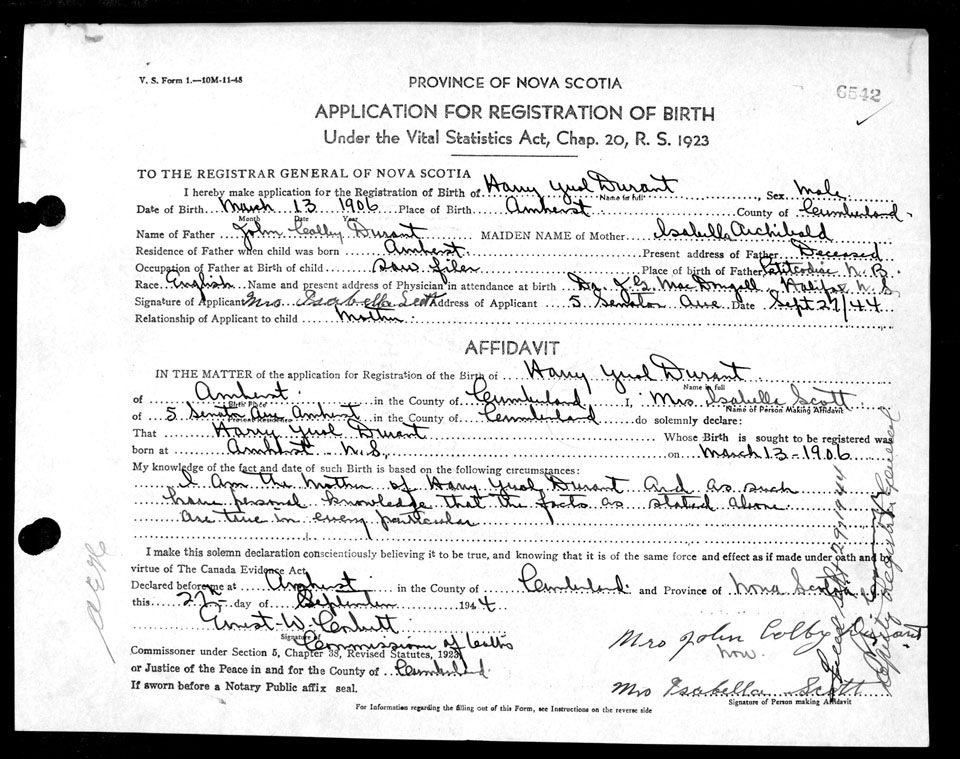 V. S. Form 1.—10M-11-43
PROVINCE OF NOVA SCOTIA
6542
APPLICATION FOR REGISTRATION OF BIRTH
Under the Vital Statistics Act, Chap. 20, R. S. 1923
TO THE REGISTRAR GENERAL OF NOVA SCOTIA
I hereby make application for the Registration of Birth of Harry Yuel Durant Sex Male
Name in full
Date of Birth March 13 1906 Place of Birth Amherst County of Cumberland
Month Date Year
Name of Father John Colby Durant MAIDEN NAME of Mother Isabella Archibald
Residence of Father when child was born Amherst Present address of Father Deceased
Occupation of Father at Birth of child saw filer Place of birth of Father Petitcodiac N.B.
Race English Name and present address of Physician in attendance at birth Dr. MacDougall Halifax N.S.
Signature of Applicant Mrs Isabella Scott Address of Applicant 5 Senator Ave Date Sept 27/44
Relationship of Applicant to child Mother
AFFIDAVIT
IN THE MATTER of the application for Registration of the Birth of Harry Yuel Durant
Name in full
of Amherst in the County of Cumberland I, Mrs. Isabella Scott
Birth Place Name of Person Making Affidavit
of 5 Senator Ave Amherst in the County of Cumberland do solemnly declare:
Present Residence
That Harry Yuel Durant Whose Birth is sought to be registered was
born at Amherst N.S. on March 13-1906
My knowledge of the fact and date of such Birth is based on the following circumstances:
I am the Mother of Harry Yuel Durant and as such
have personal knowledge that the facts as stated above
are true in every particular
I make this solemn declaration conscientiously believing it to be true, and knowing that it is of the same force and effect as if made under oath and by
virtue of The Canada Evidence Act.
Declared before me at Amherst in the County of Cumberland and Province of Nova Scotia
this 27th day of September 1944
Ernest W.
Signature of
Commissioner of Oaths
Commissioner under Section 5, Chapter 38, Revised Statutes, 1923
or Justice of the Peace in and for the County of Cumberland
If sworn before a Notary Public affix seal.
Mrs John Colby Durant
now.
Mrs Isabella Scott
Signature of Person making Affidavit
For Information regarding the filling out of this Form, see Instructions on the reverse side
Filed Sept 29th 1944
Deputy Registrar General